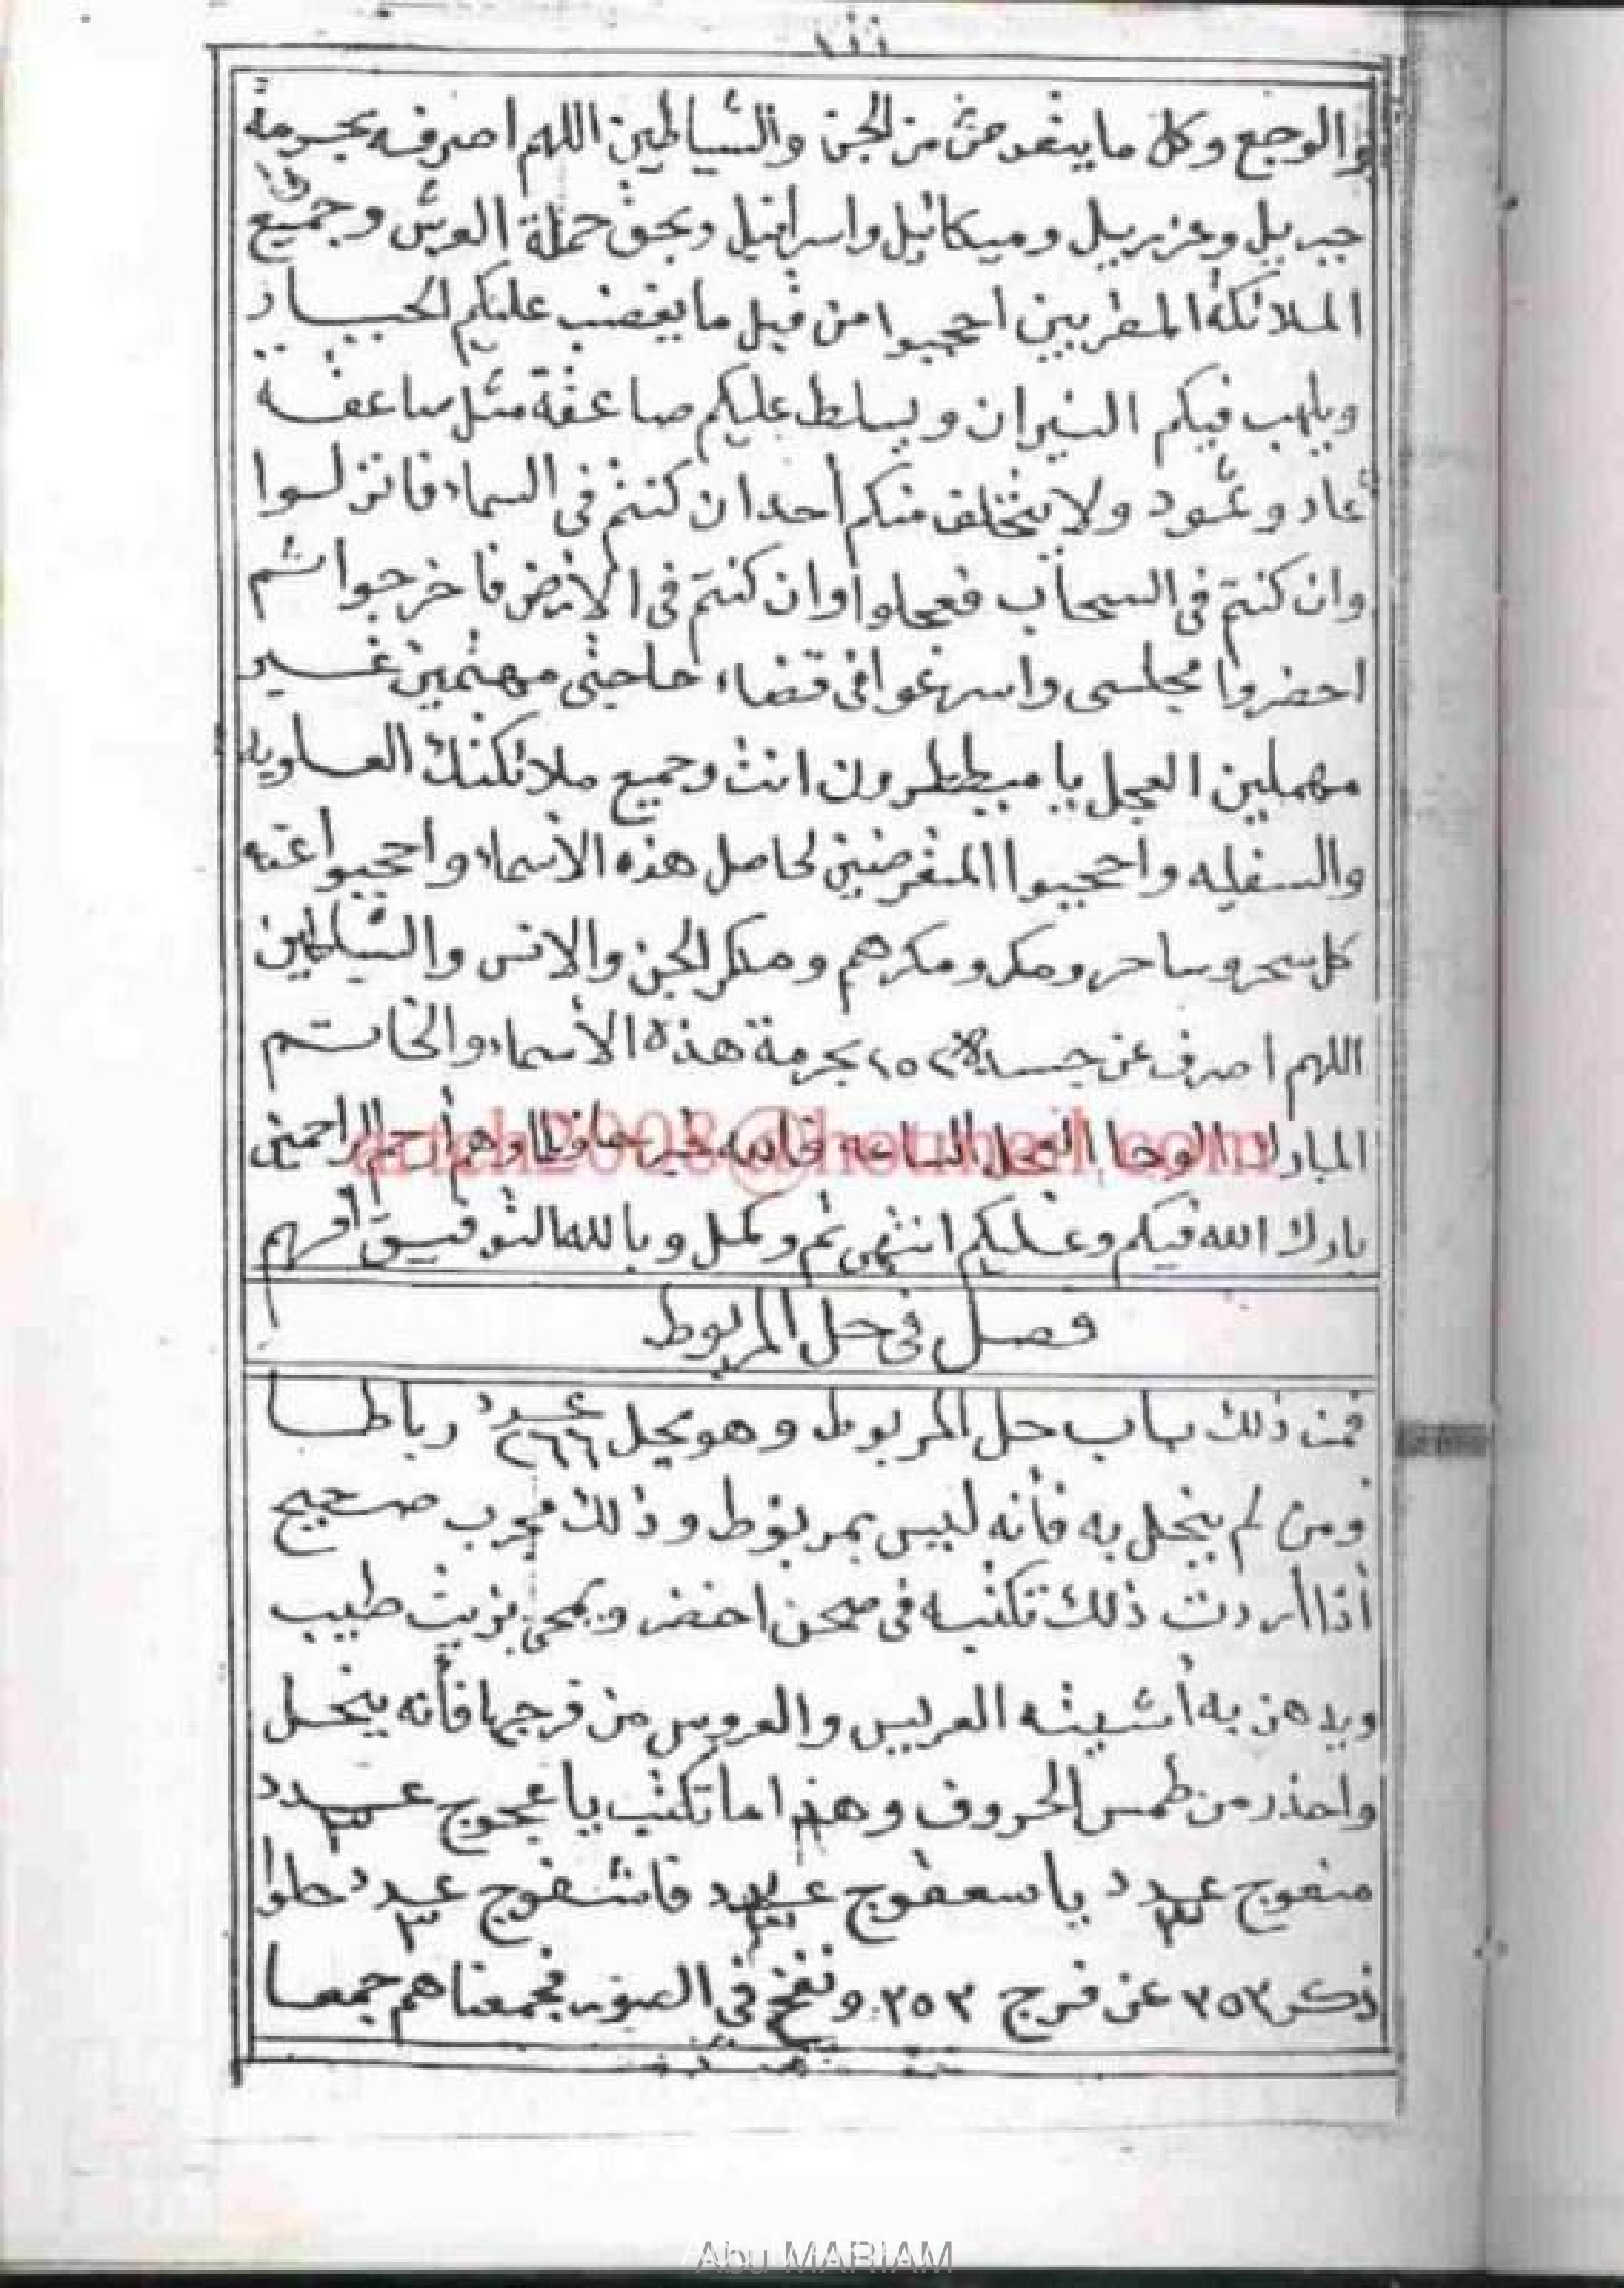 والوجع وكل ما يتعرض من الجن والشياطين اللهم اصرفه بحرمة
جبريل وعزريل وميكائيل واسرافيل وبحق حملة العرش وجميع
الملائكة المقربين احجبوا من قبل ما يغضب عليكم الجبار
ويلهب فيكم النيران ويسلط عليكم صاعقة مثل صاعقة
عاد وثمود ولا يتخلف منكم أحدا ان كنتم في السماء فانزلوا
وان كنتم في السحاب فعجلوا وان كنتم في الارض فاخرجوا ثم
احضروا مجلسى واسرعوا فى قضاء حاجتى مهتمين غير
مهملين العجل يا ميططرون انت وجميع ملائكتك العلويه
والسفليه واحجبوا المتعرضين لحامل هذه الأسماء واحجبوا عنه
كل سحر وساحر ومكر ومكرهم ومكر الجن والانس والشياطين
اللهم اصرف عن جسد بحرمة هذه الأسماء والخاتم
المبارك الوحا العجل الساعه فالله خير حافظا وهو أرحم الراحمين
بارك الله فيكم وعليكم انتهى تم وكمل وبالله التوفيق افهم
فصل فى حل المربوط
فمن ذلك باب حل المربوط وهو يحل عدد ٢٦٦ رباطا
ومن لم ينحل به فأنه ليس بمربوط وذلك مجرب صحيح
أذا أردت ذلك تكتبه فى صحن اخضر ويمحى بزيت طيب
ويدهن به أنثييه العريس والعروس من فرجها فأنه ينحل
واحذر من طمس الحروف وهذا ما تكتب يا عجوج عدد ٣
منعوج عدد يا سعفوج عدد فاشقوج عدد ٣ حلوا
ذكر ٣٥٣ عن فرج ٣٥٣ ونفخ في الصور فجمعناهم جمعا
Abu MARIAM